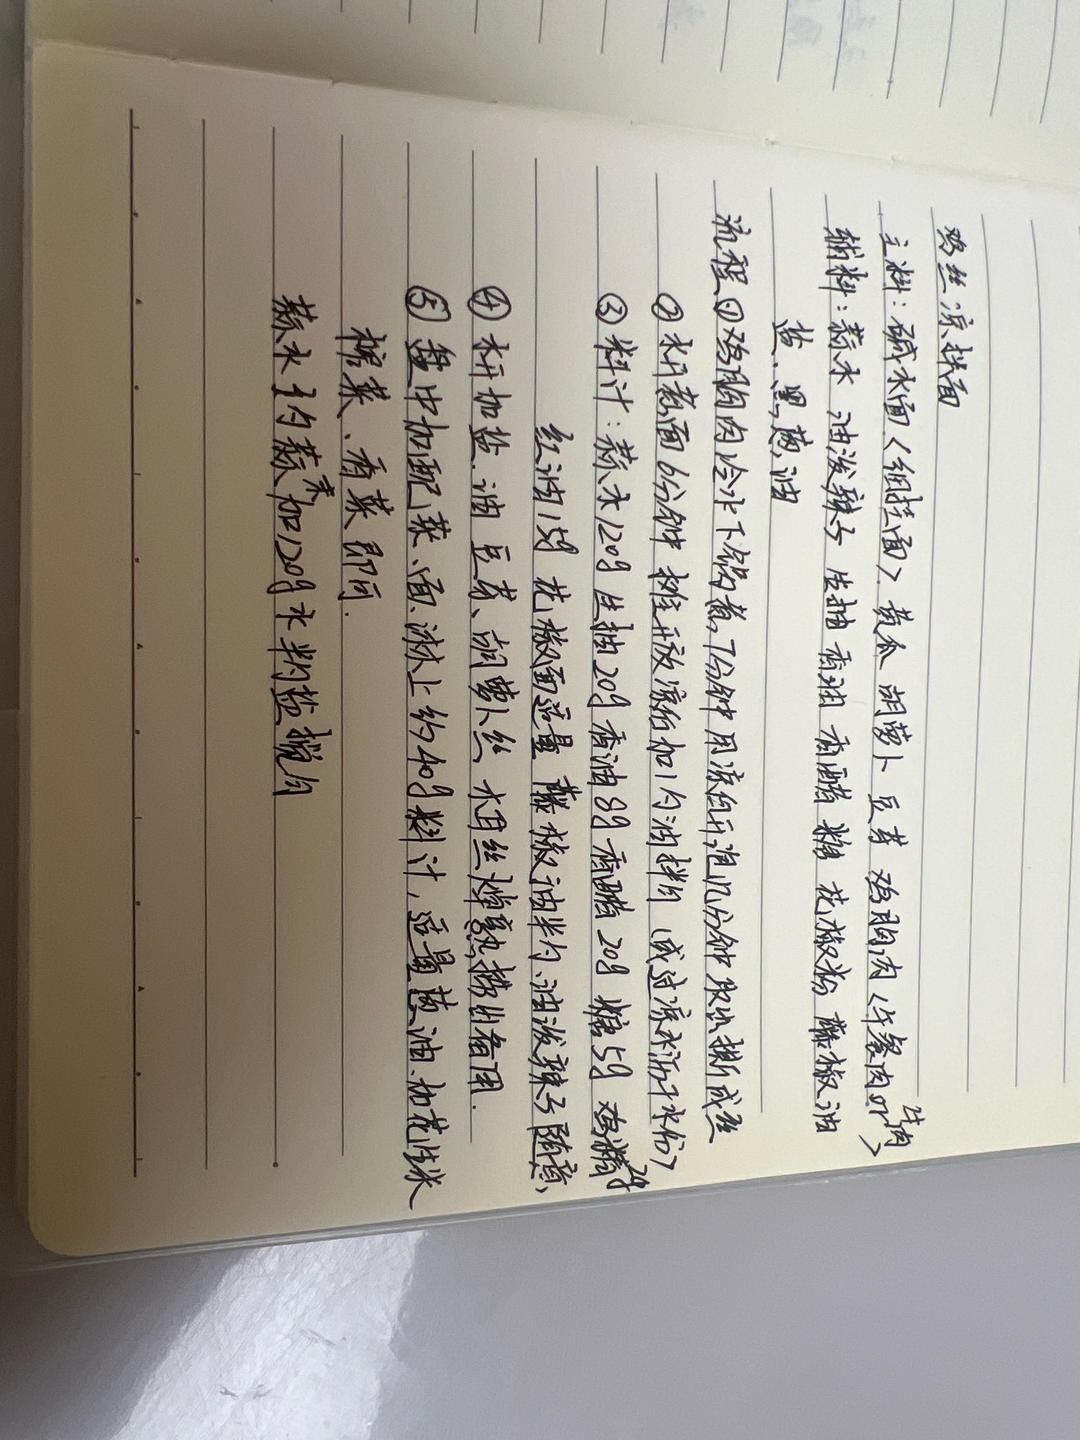 鸡丝凉拌面
主料：碱水面<细拉面>. 黄瓜 胡萝卜 豆芽 鸡胸肉<午餐肉or牛肉>
辅料：蒜水 油泼辣子 生抽 香油 香醋 糖 花椒粉 藤椒油
盐、黑葱油
流程①鸡胸肉冷水下锅煮7分钟用凉水泡几分钟取出撕成丝
②水开煮面6分钟 摊开放凉后加1勺油拌匀（或过凉水沥干水份）
③料汁：蒜水120g 生抽20g 香油8g 香醋20g 糖5g 鸡精2g
红油15g 花椒面适量 藤椒油半勺、油泼辣子随意，
④水开加盐.油 豆芽、胡萝卜丝 木耳丝焯熟捞出备用.
⑤盘中加配菜、面、淋上约40g料汁，适量葱油.加花生米
榨菜、香菜即可.
蒜水1勺蒜末加120g水半勺盐搅匀